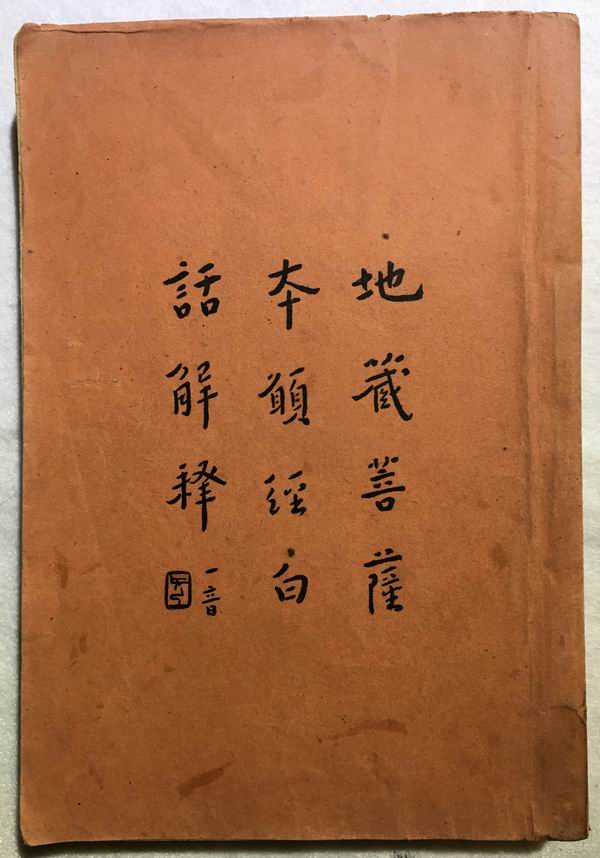 地藏菩薩
本願經白
話解釋
一音